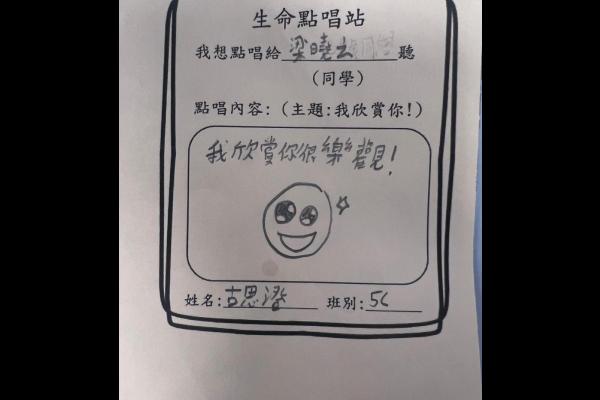 生命點唱站
我想點唱給梁曉 聽
(同學)
點唱內容:(主題:我欣賞你!)
我欣賞你很樂觀!
姓名:古思澄 班別:5C